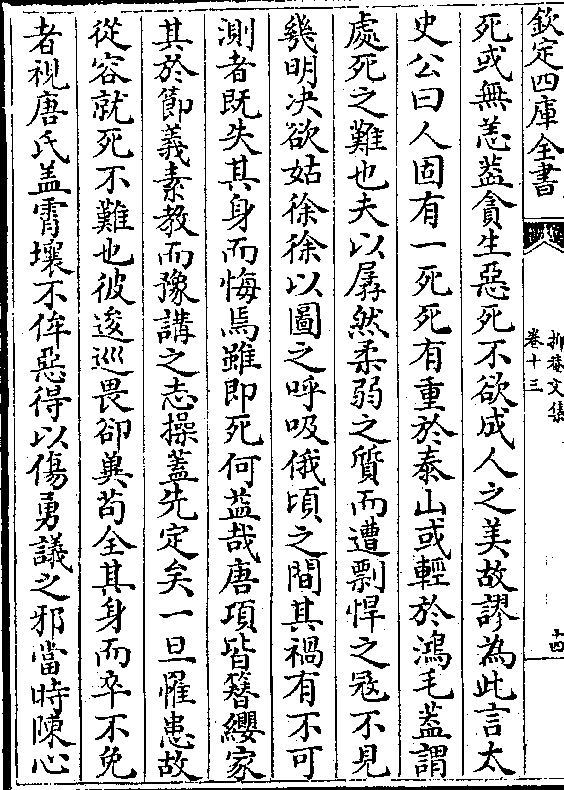 欽定四庫全書
抑菴文集
卷十三
十四
死或無恙葢貪生惡死不欲成人之美故謬為此言太
史公曰人固有一死死有重於泰山或輕於鴻毛葢謂
處死之難也夫以孱然柔弱之質而遭剽悍之冦不見
幾明决欲姑徐徐以圖之呼吸俄頃之間其禍有不可
測者既失其身而悔焉雖即死何益哉唐項皆簪纓家
其於節義素教而豫講之志操蓋先定矣一旦罹患故
從容就死不難也彼逡巡畏卻兾苟全其身而卒不免
者視唐氏盖霄壤不侔惡得以傷勇議之邪當時陳心